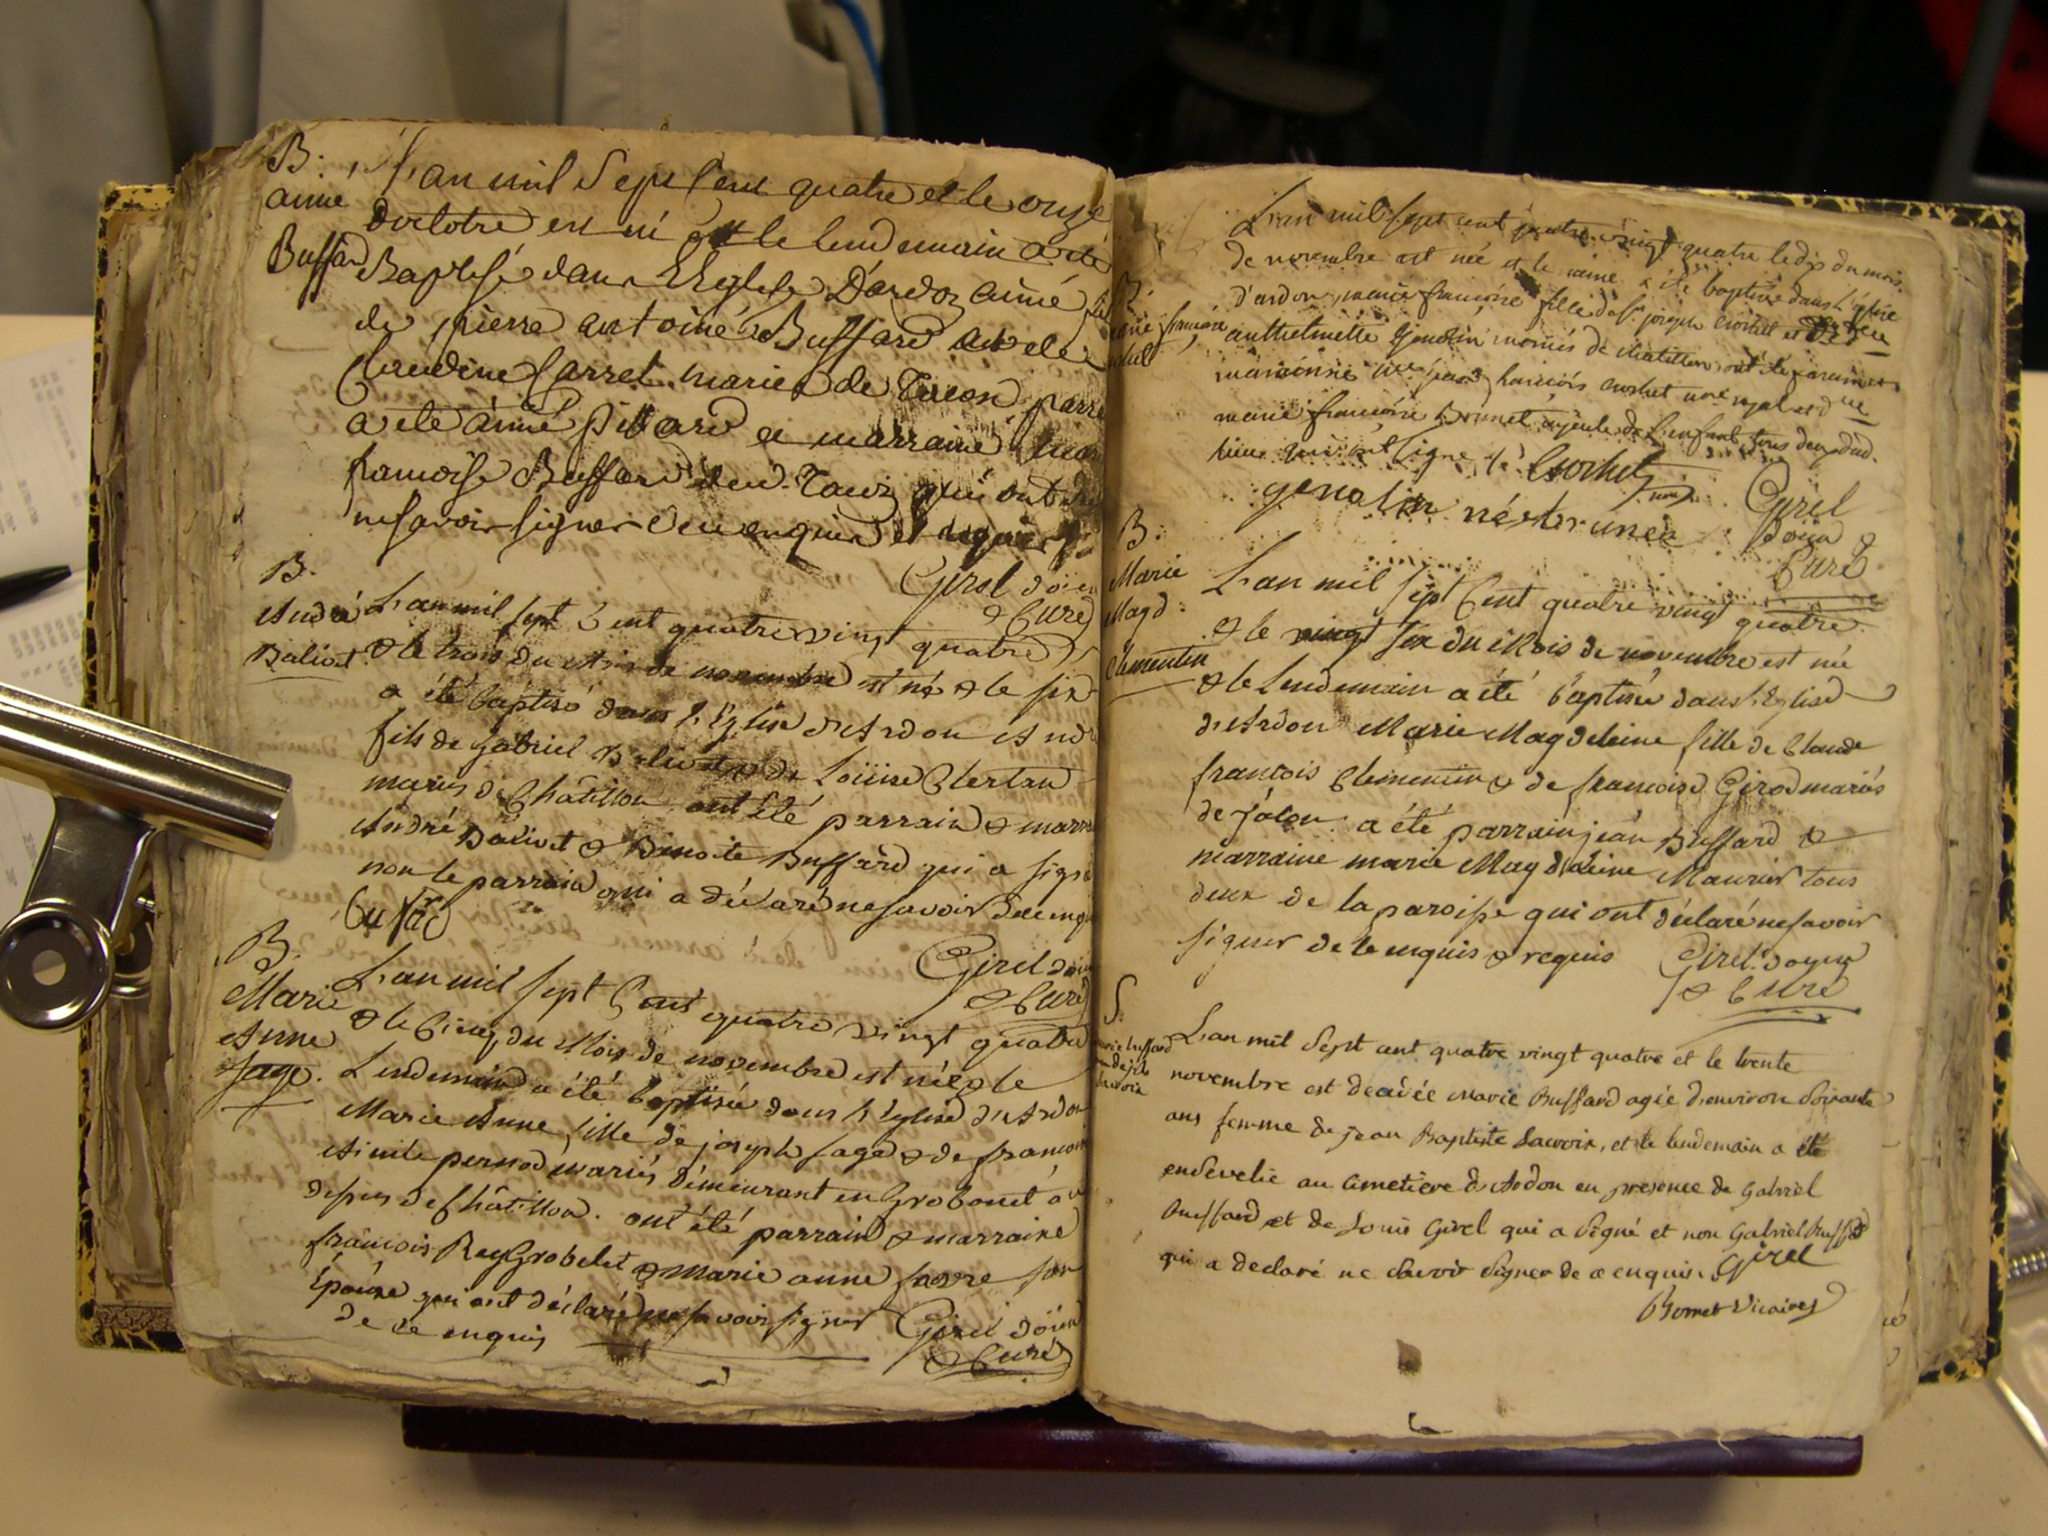 B.
aimé
Buffard
L'an mil Sept Cent quatre et le onze
d'octobre est né et le lendemain a été
Baptisé dans L'Eglise D'ardon aimé fils
de pierre antoine Buffard et de
Claudine Carret mariés de Tacon, parrain
a été aimé pillard et marraine
francoise Buffard qui ont
ne savoir signer de ce enquis et requis
Girel doien
& Curé
B.
André
Balivet
L'an mil sept Cent quatre vingt quatre
& le trois du Mois de novembre est né & le six
a été baptisé dans l'Eglise d'Ardon André
fils de gabriel Balivet & de Loüise
mariés de Châtillon ont été parrain & marraine
André Balivet & Benoite Buffard qui a signé
non le parrain qui a déclaré ne savoir de ce enquis
Girel doien
& Curé
B.
Marie
Anne
Sage.
L'an mil sept Cent quatre vingt quatre
& le Cinq du Mois de novembre est née & le
Lendemain a été baptisée dans l'Eglise d'Ardon
Marie Anne fille de joseph sage & de francoise
pernod mariés démeurant en Grobonet au
dessus de Châtillon. ont été parrain & marraine
francois Rey Grobelet & Marie anne favre son
Epouse qui ont déclaré ne savoir signer
de ce enquis
Girel doïen
& Curé
L'an mil sept cent quatre vingt quatre le dix du mois
de novembre est née et le même a été baptisée dans l'église
d'ardon, marie françoise fille de Sr joseph crochet et de
anthelmette genolin mariés de chatillon, ont été parrain et
marainne françois crochet nore royal et
marie françoise Brunet ayeule de l'enfant tous deux dud.
lieu qui ont signé
Crochet
Girel
doien
& Curé
B.
Marie
Magd:
Clementin
L'an mil sept Cent quatre vingt quatre
& le vingt six du Mois de novembre est née
& le Lendemain a été baptisée dans l'Eglise
d'Ardon Marie Magdeleine fille de Claude
francois Clementin & de francoise Girod mariés
de a été parrain jean Buffard &
marraine marie Magdeleine Maurier tous
deux de la paroisse qui ont déclaré ne savoir
signer de ce enquis & requis
Girel doyen
& Curé
S.
marie buffard
L'an mil Sept cent quatre vingt quatre et le trente
novembre est decédée marie Buffard agée d'environ Soixante
ans femme de jean Baptiste Savoie, et le lendemain a été
ensevelie au cimetière d'Ardon en presence de Gabriel
Buffard et de Louis Girel qui a Signé et non Gabriel Buffard
qui a declaré ne Savoir Signer de ce enquis. Girel
Bornet Vicaire